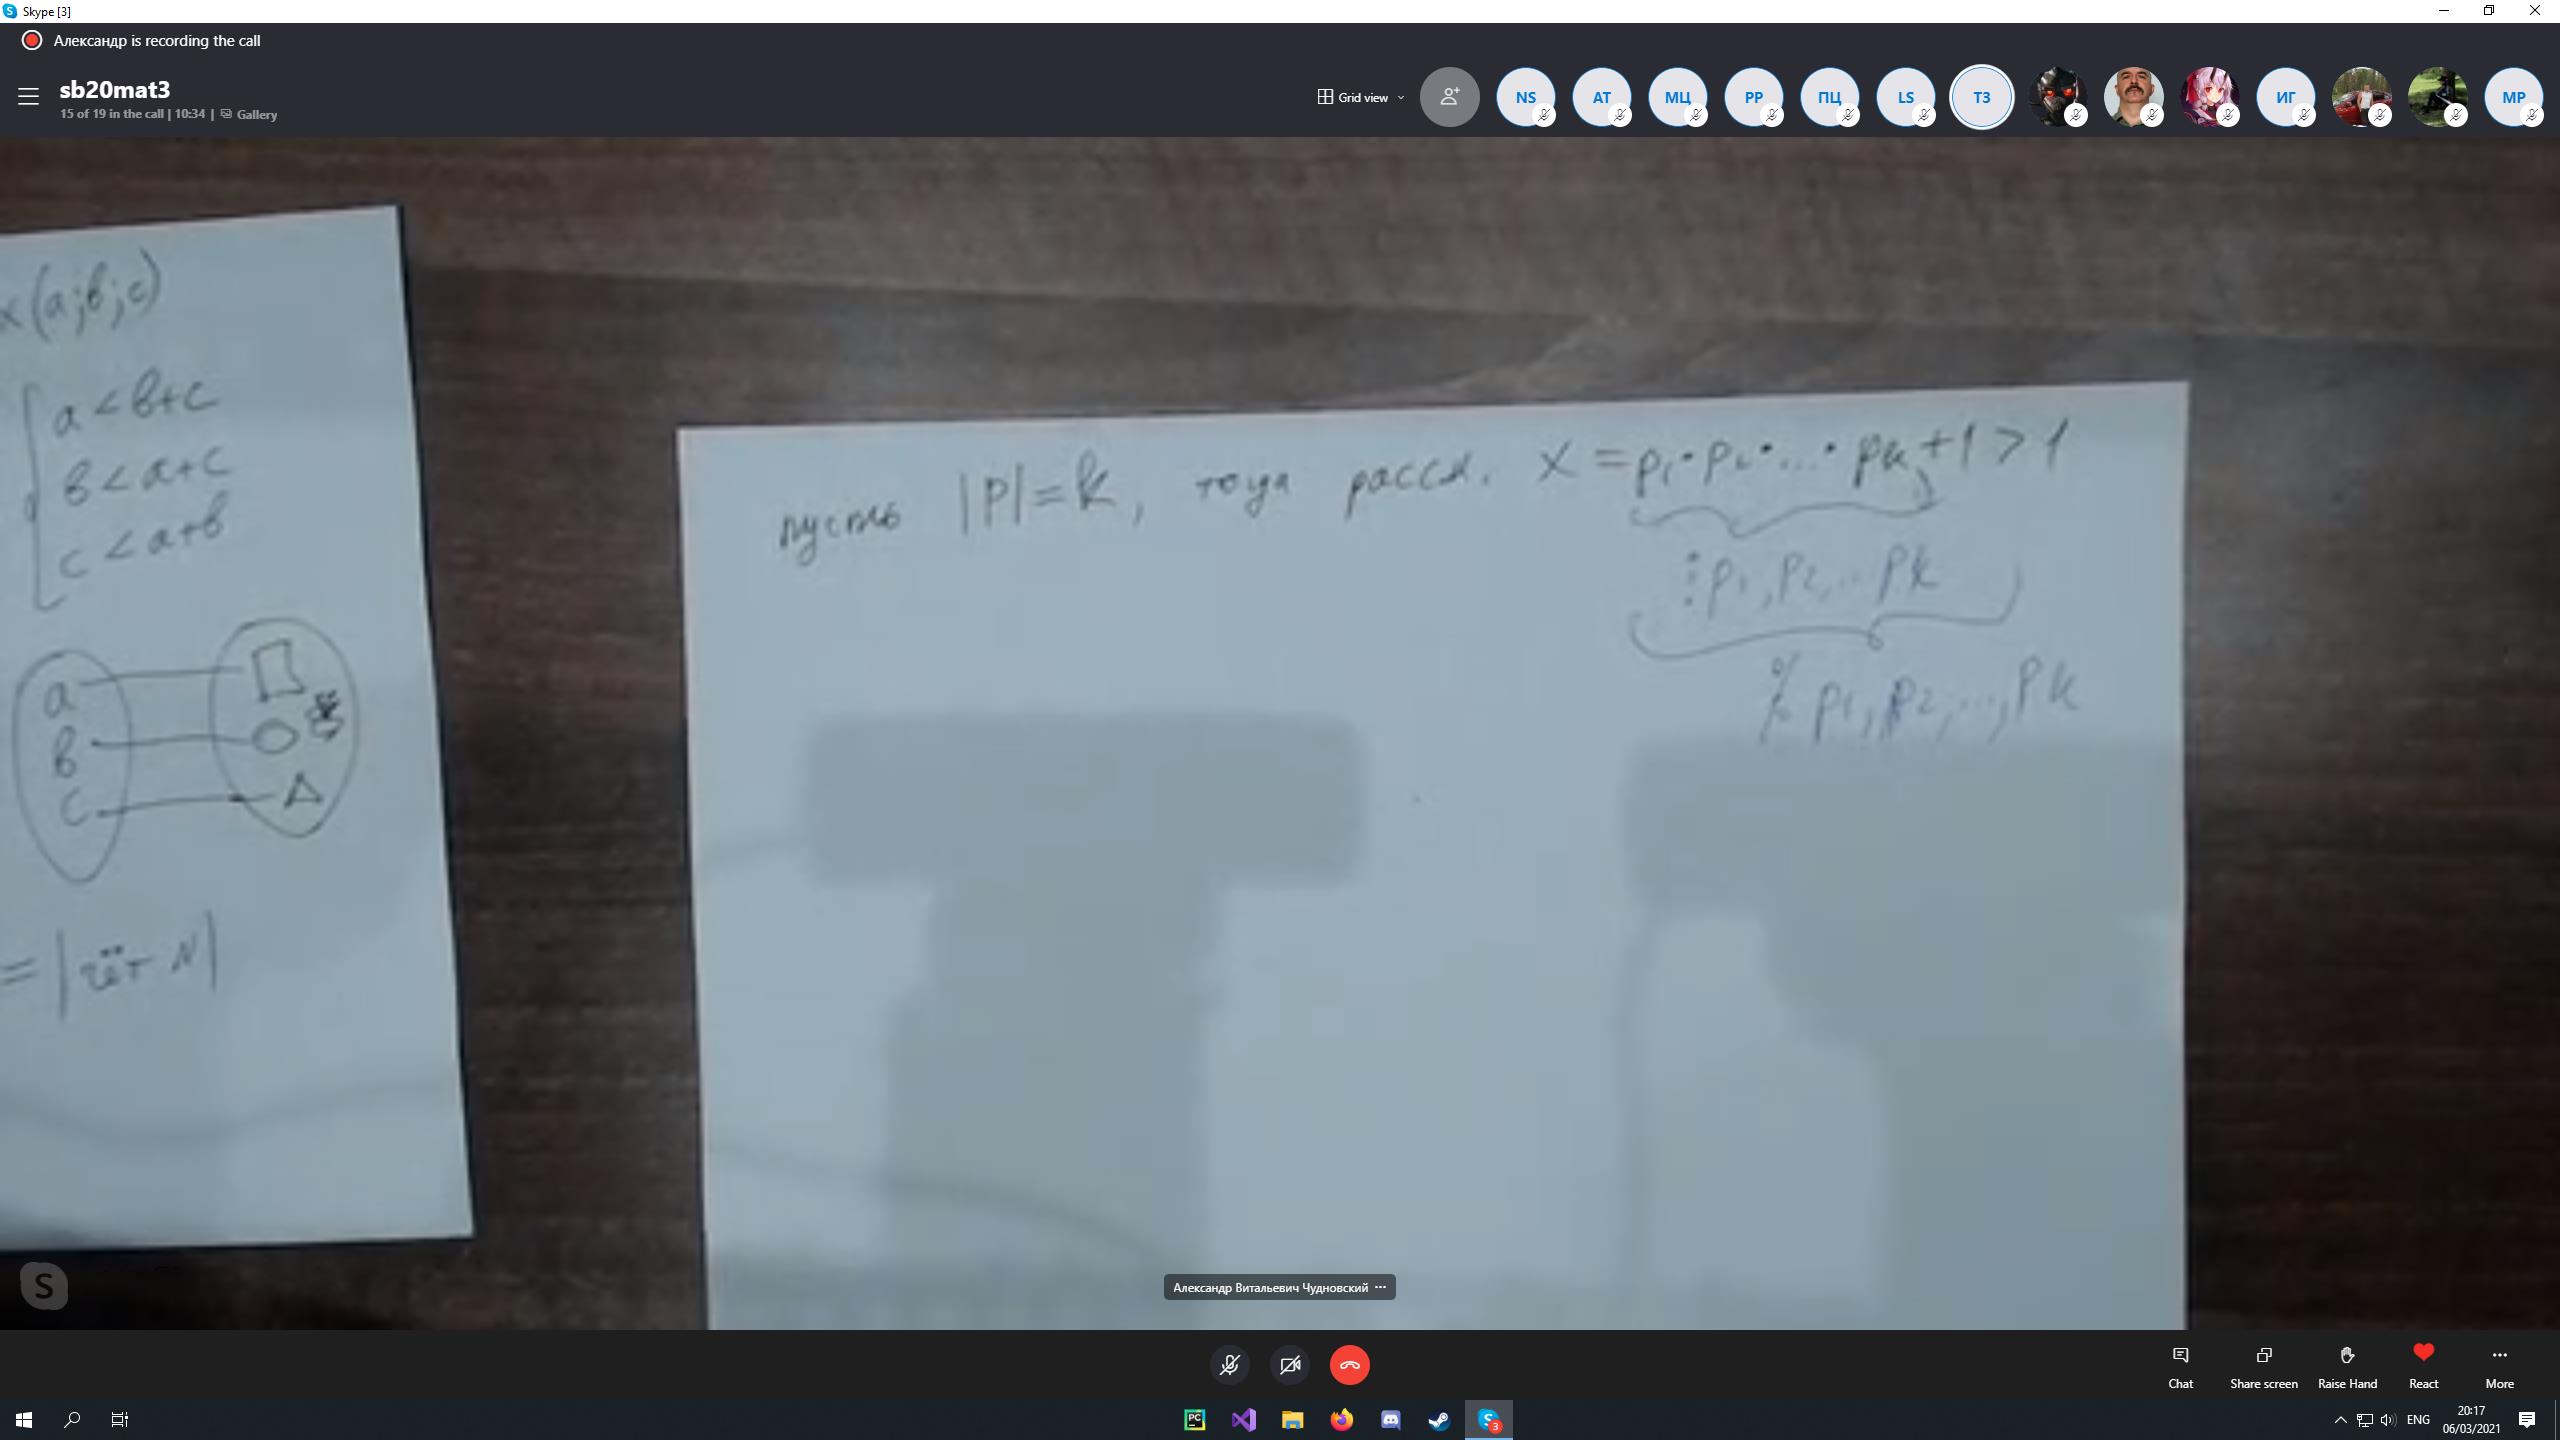 Skype [3]
Александр is recording the call
sb20mat3
15 of 19 in the call | 10:34 | Gallery
Grid view
NS
AT
МЦ
PP
ПЦ
LS
ТЗ
ИГ
MP
x(a;b;c)
a<b+c
b<a+c
c<a+b
a
b
c
=|чёт N|
пусть |P|=k, тогда рассм. x=p₁·p₂·...·pk+1>1
⋮p₁,p₂,..pk
p₁,p₂,...,pk
Александр Витальевич Чудновский ···
S
Chat
Share screen
Raise Hand
React
More
PC
S 3
ENG
20:17
06/03/2021